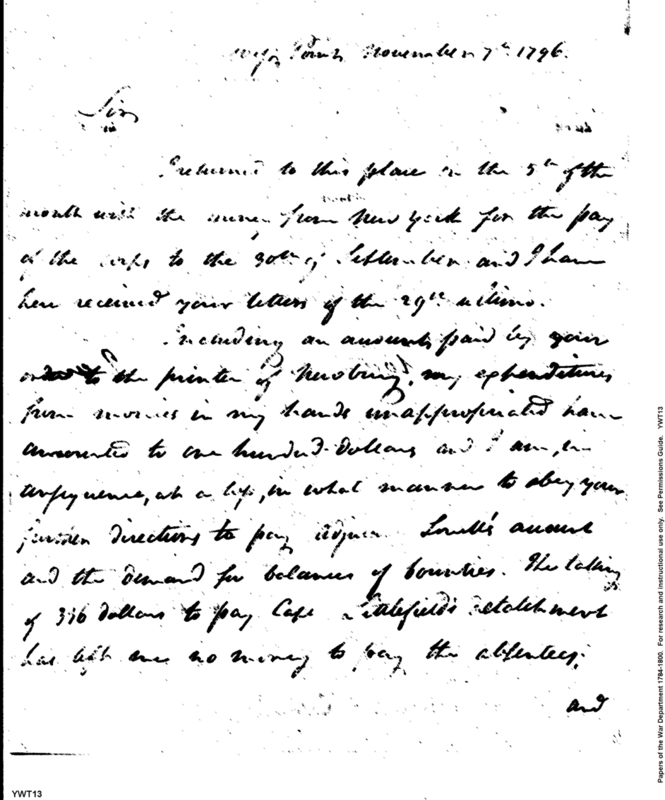 West Point November 7th 1796.
Sir
I returned to this place on the 5th of the
month with the money from New York for the pay
of the corps to the 30th of September and I have
here received your letters of the 29th ultimo.
Including an amount paid by your
order to the printer of Newburg, my expenditures
from monies in my hands unappropriated have
amounted to one hundred dollars and I am, in
consequence, at a loss, in what manner to obey your
further directions to pay Lovell's account
and the demand for balances of bounties. The taking
of 336 dollars to pay Capt Littlefield's detachment
has left me no money to pay the absentees;
and
YWT13
Papers of the War Department 1784-1800. For research and instructional use only. See Permissions Guide. YWT13